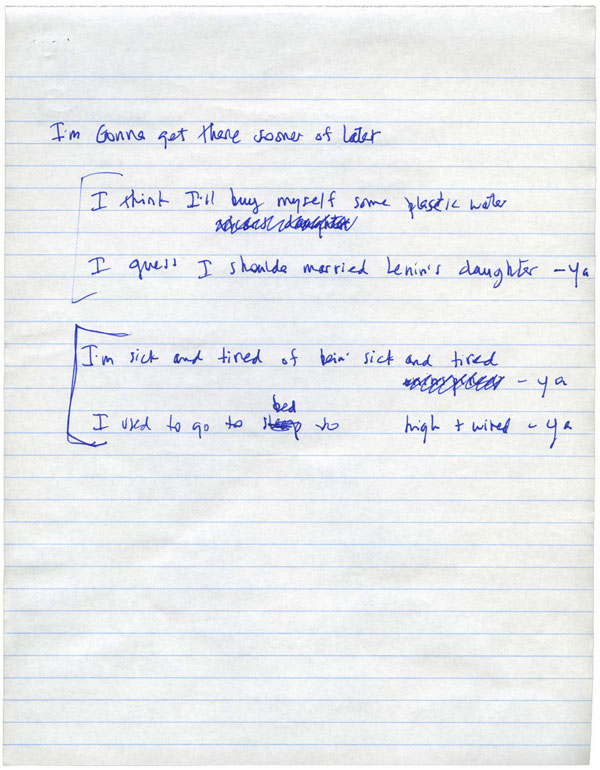 I'm Gonna get there sooner of later
I think I'll buy myself some plastic water
I guess I shoulda married Lenin's daughter – ya
I'm sick and tired of bein' sick and tired
– ya
bed
I used to go to sleep so high + wired – ya